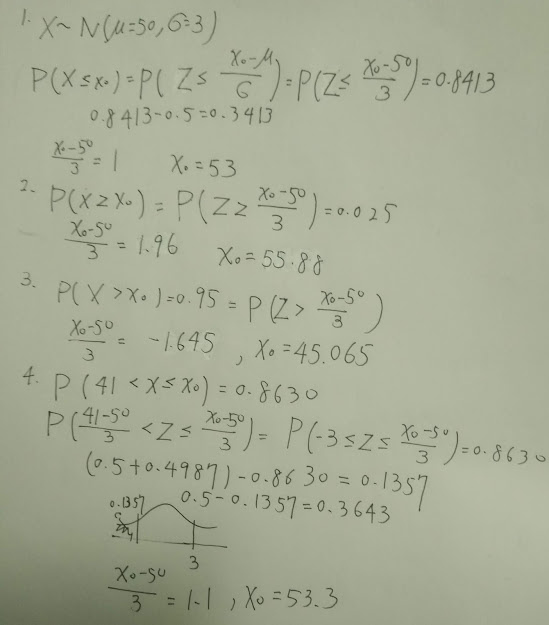 1. X~N(μ=50, σ=3)
P(X≤x₀)=P(Z≤ (x₀-μ)/σ)=P(Z≤ (x₀-50)/3)=0.8413
0.8413-0.5=0.3413
(x₀-50)/3=1 x₀=53
2. P(X≥x₀)=P(Z≥ (x₀-50)/3)=0.025
(x₀-50)/3=1.96 x₀=55.88
3. P(X>x₀)=0.95=P(Z> (x₀-50)/3)
(x₀-50)/3= -1.645, x₀=45.065
4. P(41<X≤x₀)=0.8630
P((41-50)/3<Z≤ (x₀-50)/3)= P(-3≤Z≤ (x₀-50)/3)=0.8630
(0.5+0.4987)-0.8630=0.1357
0.1357 0.5-0.1357=0.3643
3
(x₀-50)/3=1.1, x₀=53.3